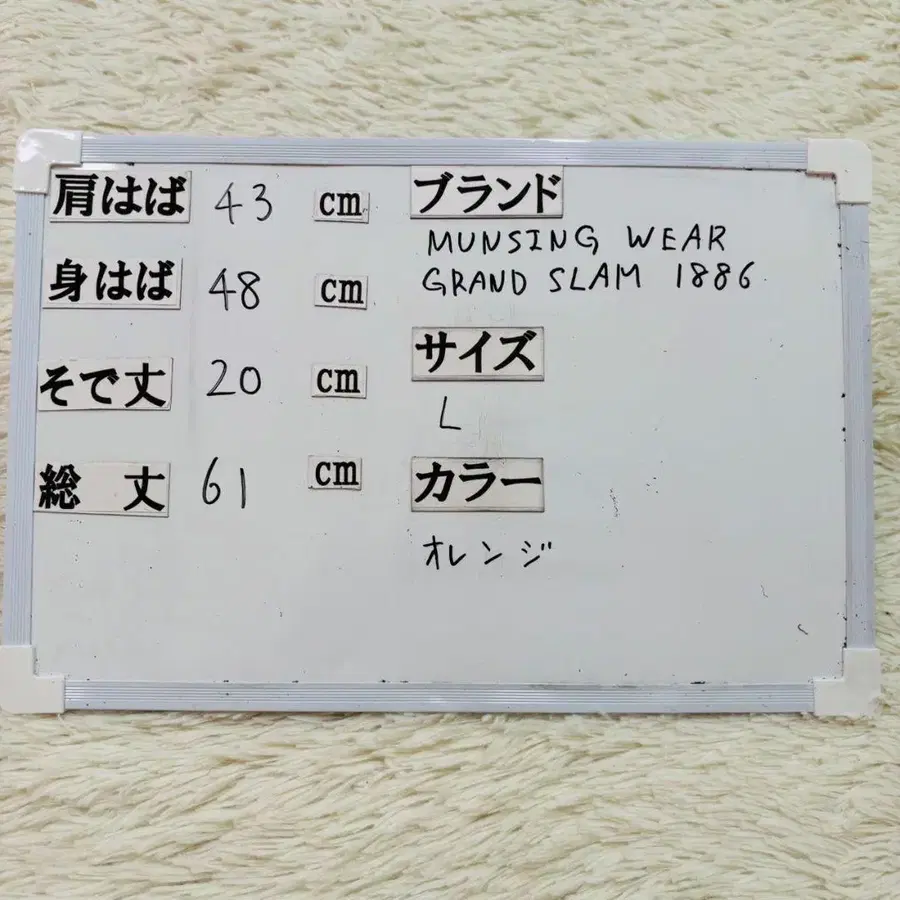 肩はば 43 cm
身はば 48 cm
そで丈 20 cm
総 丈 61 cm
ブランド
MUNSING WEAR
GRAND SLAM 1886
サイズ
L
カラー
オレンジ